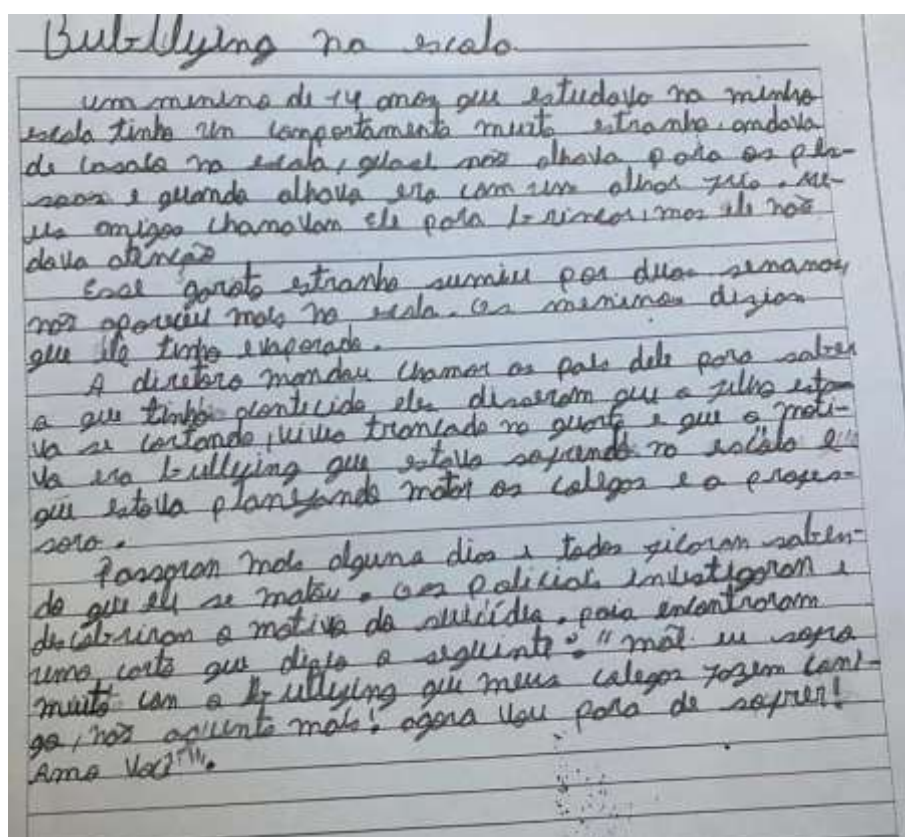 Bullying na escola
um menino de 14 anos que estudava na minha
escola tinha um comportamento muito estranho. andava
de casaco na escola, não olhava para as pes-
soas e quando olhava era com um olhar frio. Me-
us amigos chamavam ele para brincar, mas ele não
dava atenção
Esse garoto estranho sumiu por duas semanas,
não apareceu mais na escola. Os meninos diziam
que ele tinha evaporado.
A diretora mandou chamar os pais dele para saber
o que tinha acontecido eles disseram que o filho esta-
va se cortando, vivia trancado no quarto e que o moti-
vo era bullying que estava sofrendo na escola e
que estava planejando matar os colegas e a profes-
sora.
Passaran mais alguns dias e todos ficaram saben-
do que ele se matou. Os policiais investigaram e
descobriram o motivo do suicídio. pois encontraram
uma carta que dizia o seguinte: "mãe eu sofro
muito con o bullying que meus colegas fazem comi-
go, não aguento mais! agora vou para de sofrer!
Amo você"".